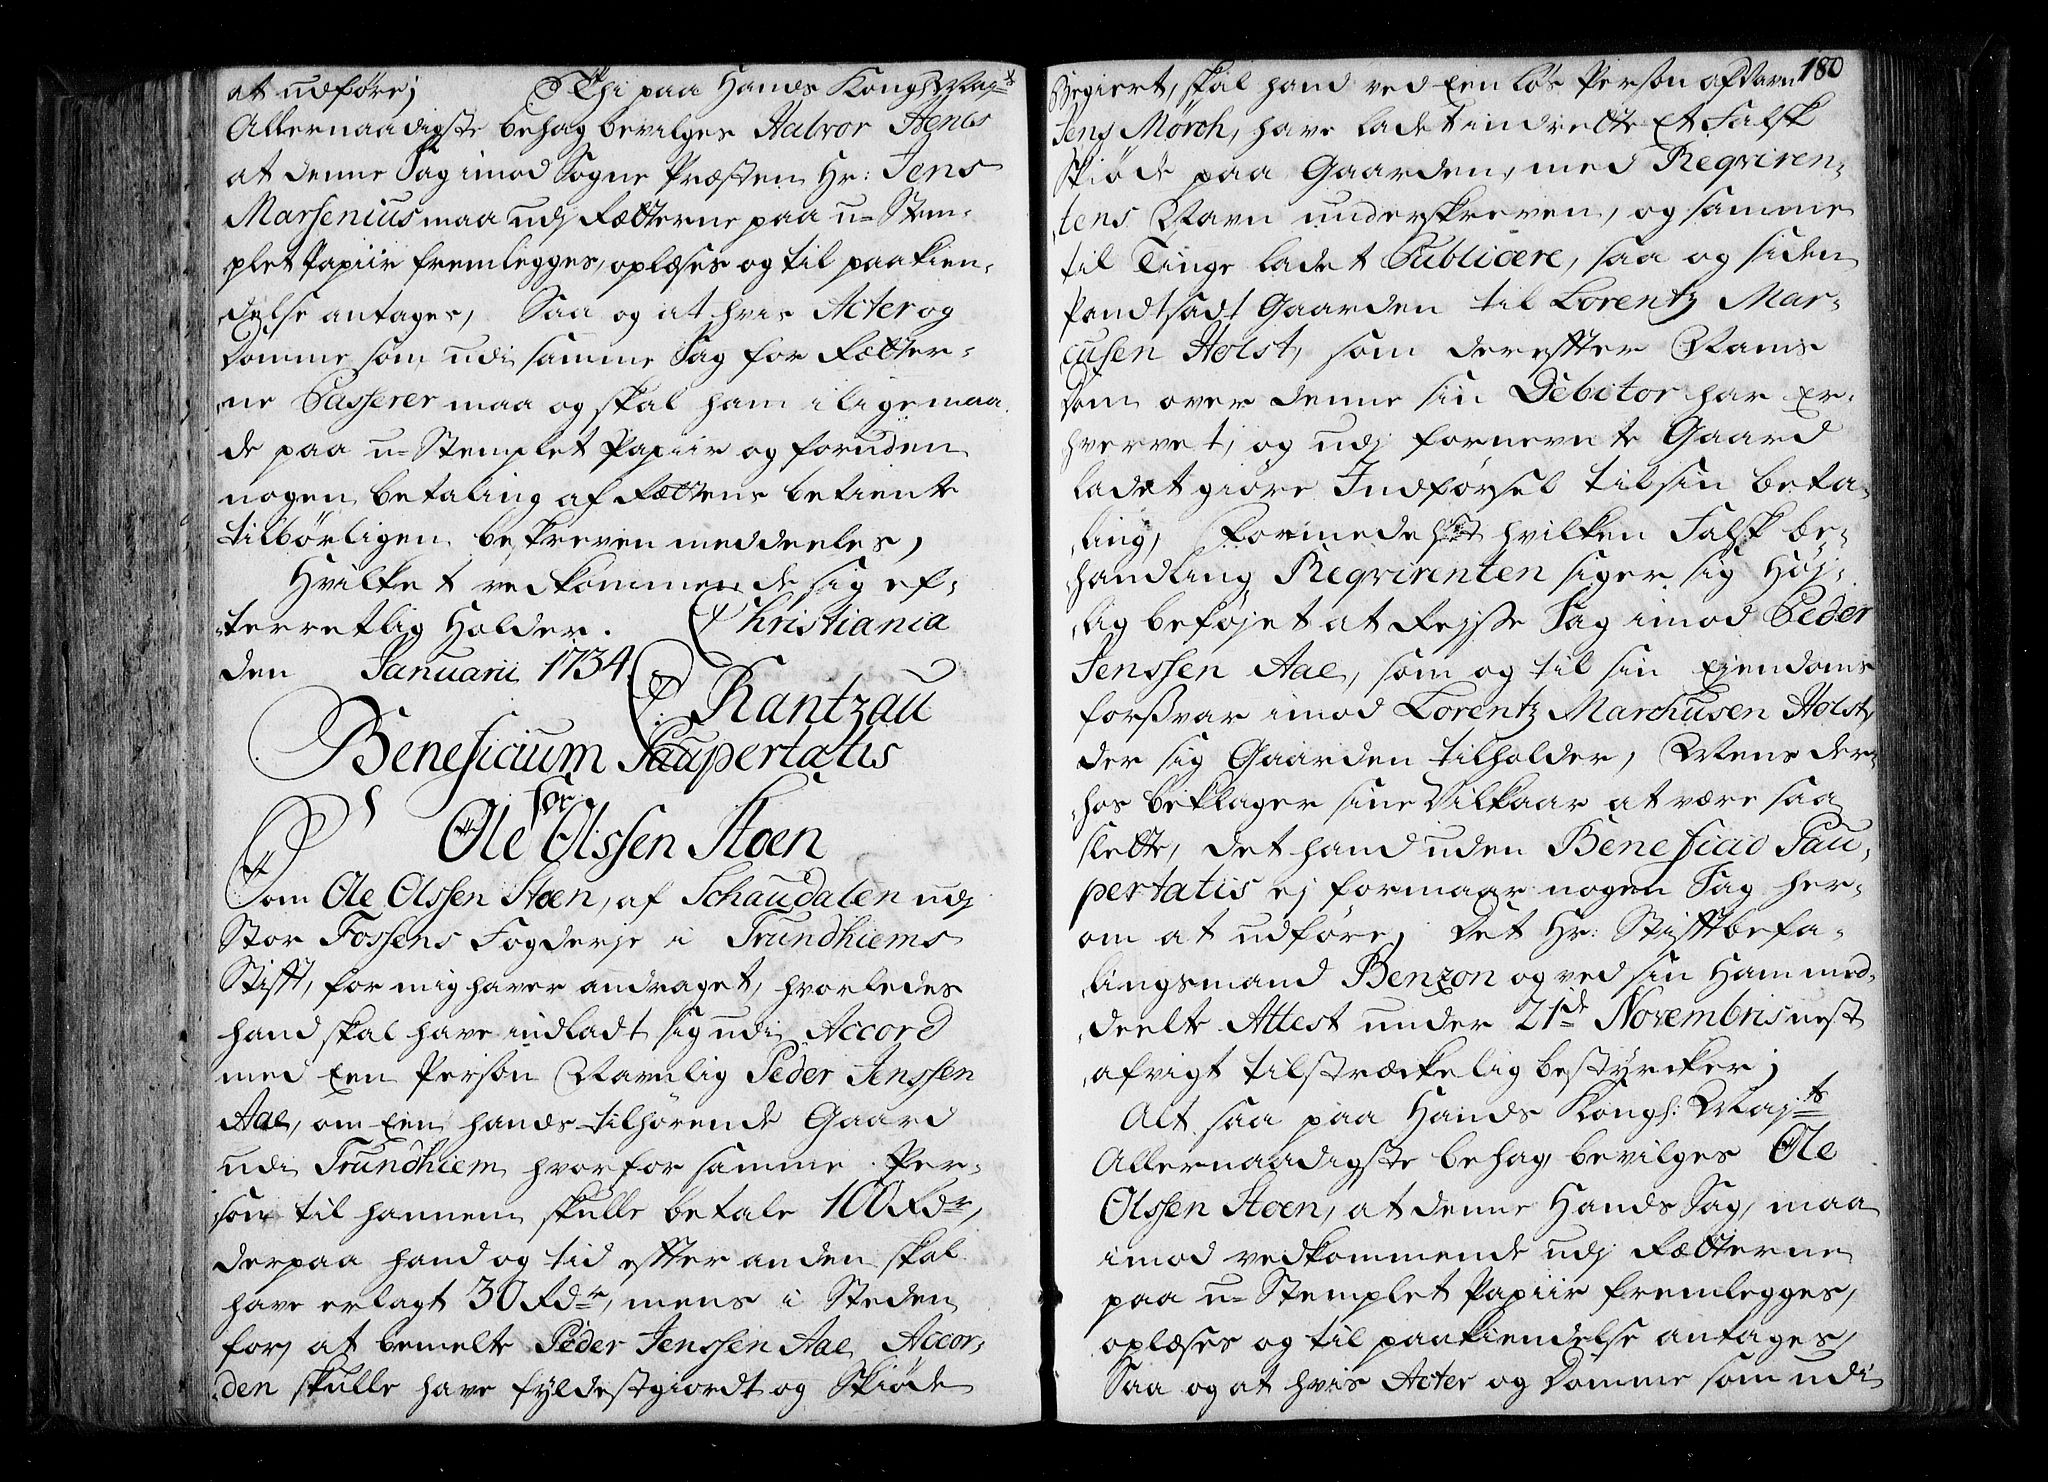 at udføre; Thi paa Hands Kongl: Maj:ts
Allernaadigste behag bevilges Halvor Stenes
at denne Sag imod Sogne Præsten Hr: Jens
Marsenius maa udj Rætterne paa u-Stem-
plet Papiir fremlegges, oplæses og til paakien-
delse antages, Saa og at hvis Acter og
Domme som udi samme Sag for Rætter-
ne Passerer maa og skal ham i lige maa-
de paa u-Stemplet Papiir og foruden
nogen betaling af Rættens betiente
tilbørligen beskreven meddeeles,
Hvilket vedkommende sig ef-
terretlig Holder. Christiania
den Januarii 1734.
C: Rantzau
Beneficium Paupertatis
for
Ole Olssen Stoen
Som Ole Olssen Stoen, af Schaudalen udj
Stor Fossens Fogderje i Trundhiems
Stifft, for mig haver andraget, hvorledes
hand skal have indladt sig udi Accord
med Een Person Navnlig Peder Jenssen
Aae, om Een hands tilhørende Gaard
udi Trundhiem, hvorfor samme Per-
son til hannem skulle betale 100 Rdr,
derpaa hand og tid effter anden skal
have erlagt 30 Rdr, mens i Steden
for, at bemelte Peder Jenssen Aae Accor-
den skulle have fyldestgiordt og Skiøde
180
Begiert, skal hand ved Een løs Person af Navn
Jens Mörch, have ladet indrette Et Falsk
Skiøde paa Gaarden, med Reqviren-
tens Navn underskreven, og samme
til Tinge ladet Publicere, saa og siden
Pandtsadt Gaarden til Lorentz Mar-
cusen Holst, som dereffter Nams
Dom over denne sin Debitor har Er-
hvervet, og udj fornevnte Gaard
ladet giøre Indførsel til sin beta-
ling, Formedelst hvilken Falsk be-
handling Reqvirenten siger sig Høj-
lig beføjet at Rejse Sag imod Peder
Jenssen Aae, som og til sin Ejendoms
forsvar imod Lorentz Marchusen Holst,
der sig Gaarden tilholder, Mens der-
hos beklager sine Vilkaar at være saa
slette, det hand uden Beneficio Pau-
pertatis ej formaar nogen Sag her-
om at udføre, det Hr: Stifftbefa-
lingsmand Benzon og ved sin Ham med-
deelte Attest under 21de Novembris nest
afvigt tilstræckelig bestyrcker;
Alt saa paa Hands Kongl: Maj:ts
Allernaadigste behag bevilges Ole
Olssen Stoen, at denne Hands Sag, maa
imod vedkommende udj Rætterne
paa u-Stemplet Papiir fremlegges,
oplæses og til paakiendelse antages,
Saa og at hvis Acter og Domme som udi